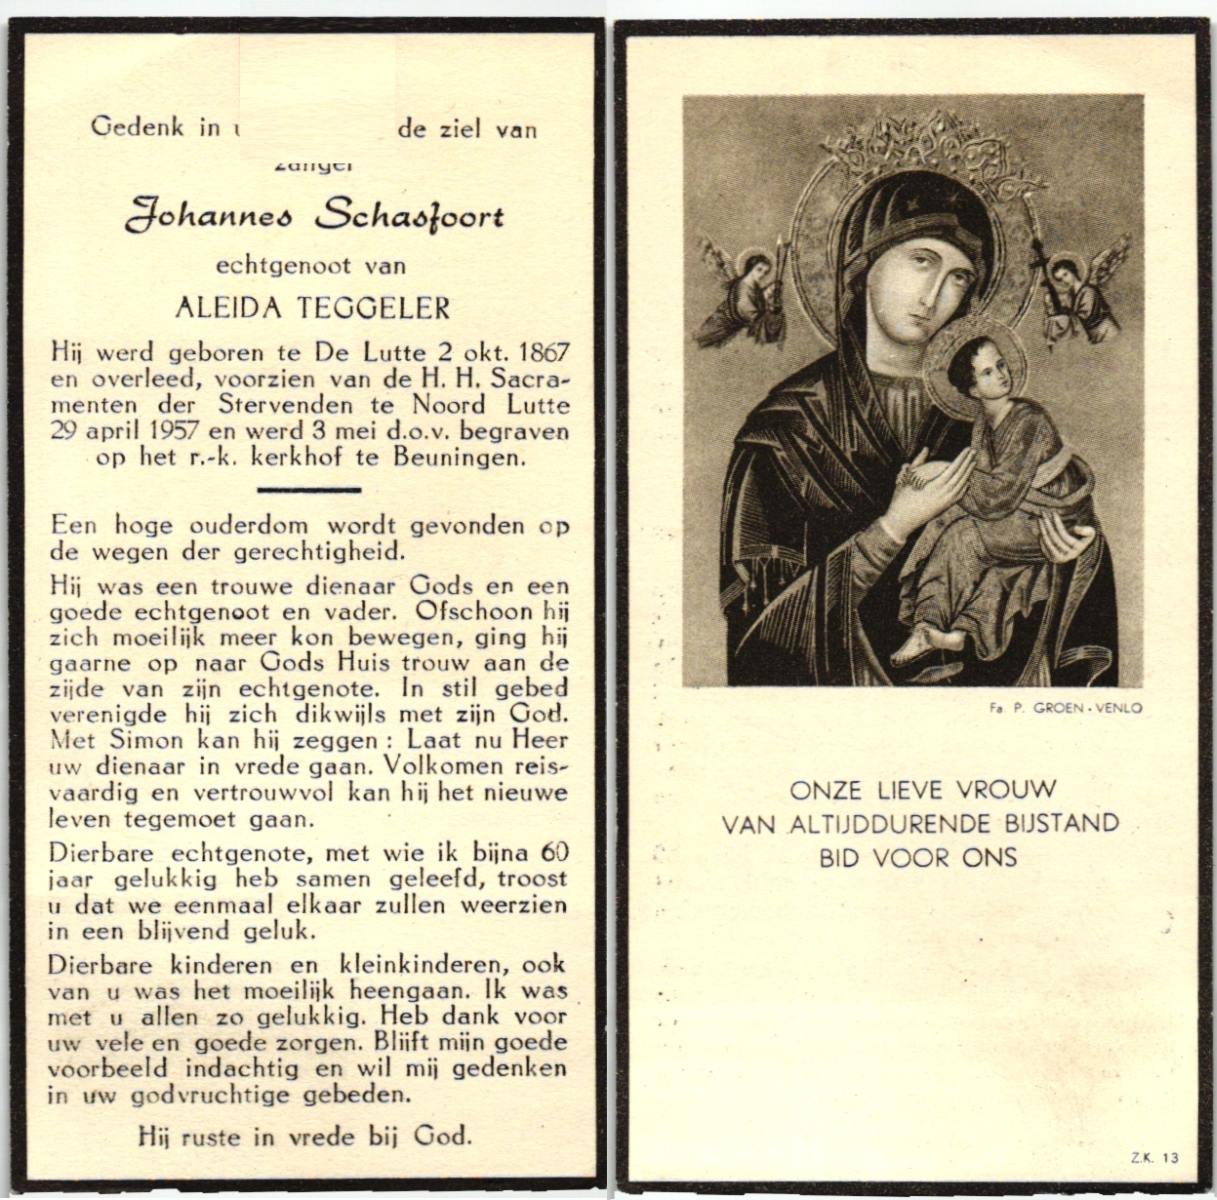 Gedenk in de ziel van
Johannes Schasfoort
echtgenoot van
ALEIDA TEGGELER
Hij werd geboren te De Lutte 2 okt. 1867
en overleed, voorzien van de H. H. Sacra-
menten der Stervenden te Noord Lutte
29 april 1957 en werd 3 mei d.o.v. begraven
op het r.-k. kerkhof te Beuningen.
Een hoge ouderdom wordt gevonden op
de wegen der gerechtigheid.
Hij was een trouwe dienaar Gods en een
goede echtgenoot en vader. Ofschoon hij
zich moeilijk meer kon bewegen, ging hij
gaarne op naar Gods Huis trouw aan de
zijde van zijn echtgenote. In stil gebed
verenigde hij zich dikwijls met zijn God.
Met Simon kan hij zeggen : Laat nu Heer
uw dienaar in vrede gaan. Volkomen reis-
vaardig en vertrouwvol kan hij het nieuwe
leven tegemoet gaan.
Dierbare echtgenote, met wie ik bijna 60
jaar gelukkig heb samen geleefd, troost
u dat we eenmaal elkaar zullen weerzien
in een blijvend geluk.
Dierbare kinderen en kleinkinderen, ook
van u was het moeilijk heengaan. Ik was
met u allen zo gelukkig. Heb dank voor
uw vele en goede zorgen. Blijft mijn goede
voorbeeld indachtig en wil mij gedenken
in uw godvruchtige gebeden.
Hij ruste in vrede bij God.
Fa. P. GROEN - VENLO
ONZE LIEVE VROUW
VAN ALTIJDDURENDE BIJSTAND
BID VOOR ONS
Z.K. 13